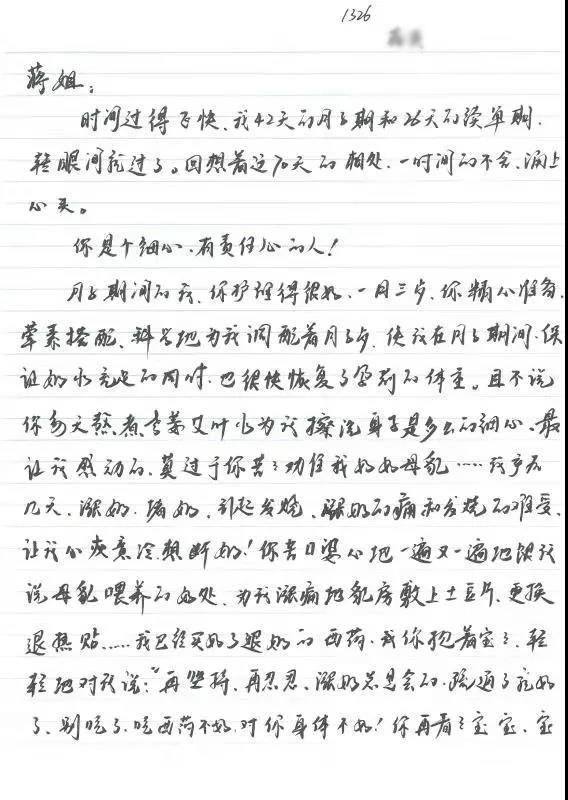 1326
蒋姐：
时间过得飞快、我42天的月子期和26天的续单期、
转眼间就过了。回想着这70天的相处、一时间的不舍、涌上
心头。
你是个细心、有责任心的人！
月子期间的我、你护理得很好、一月三岁、你精心准备、
荤素搭配、科学地为我调配着月子岁、使我在月子期间、保
证奶水充足的同时、也很快恢复了孕前的体重。且不说
你每天熬煮香茅艾叶水为我擦洗身子是多么的细心、最
让我感动的、莫过于你苦苦劝住我奶奶母乳……我产后
几天、涨奶、堵奶、引起发烧、涨奶的痛和发烧的难受、
让我心灰意冷、想断奶！你苦口婆心地一遍又一遍地跟我
说母乳喂养的好处、为我涨痛地乳房敷上土豆片、更换
退热贴……我已经买好了退奶的西药、我你抱着宝宝、轻
轻地对我说：“再坚持、再忍忍、涨奶总是会的、疏通了就好
了、别吃了、吃西药不好、对你身体不好！你再看看宝宝、宝